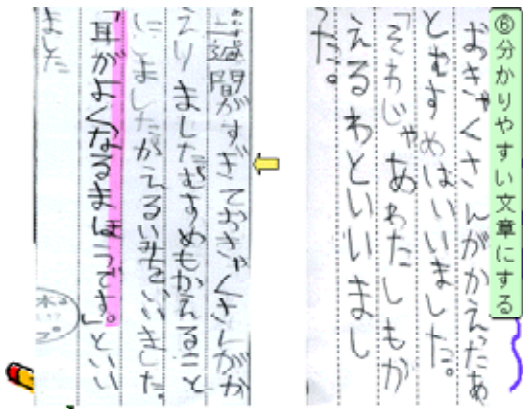 ⑥分かりやすい文章にする
おきゃくさんがかえったあ
とむすめはいいました。
「それじゃあわたしもか
えるわといいまし
た。
一週間がすぎておきゃくさんがか
えりましたむすめもかえること
にしましたがえるい
をいいました。
「耳がよくなるまほうです。」といい
ました